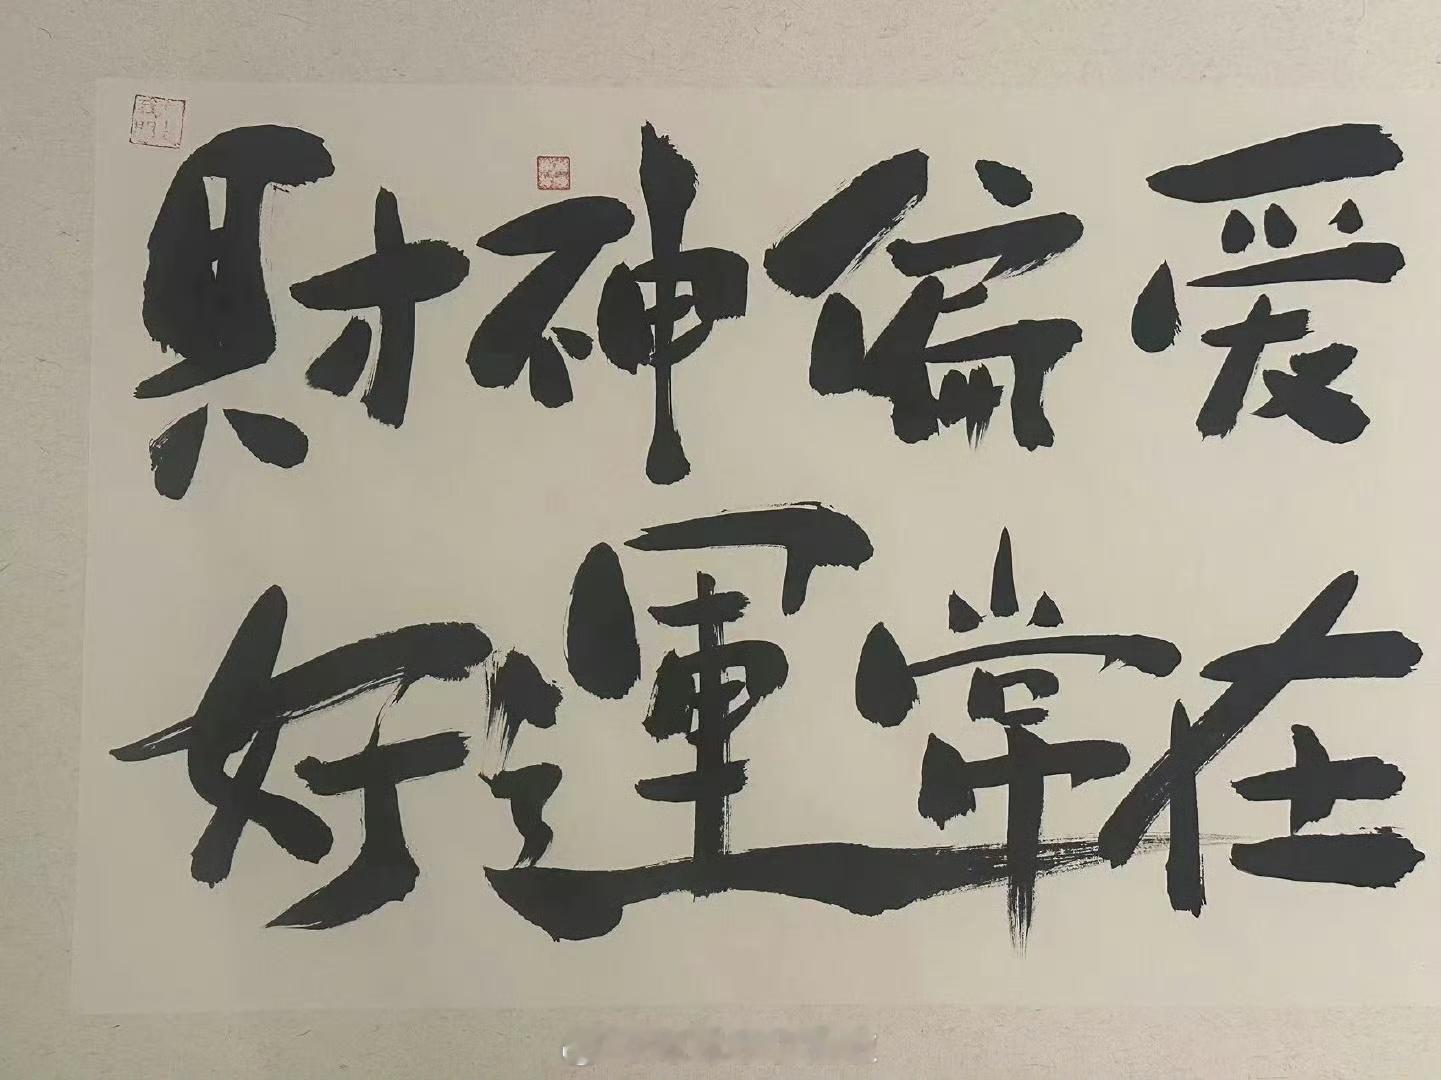 財神偏爱
好運常在